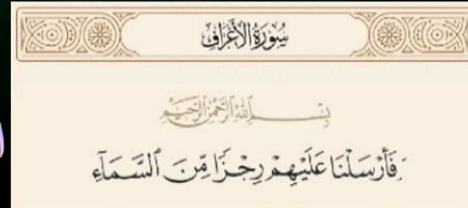 سُورَةُ الأَعْرَافِ
بِسْمِ اللَّهِ الرَّحْمَنِ الرَّحِيمِ
فَأَرْسَلْنَا عَلَيْهِمْ رِجْزًا مِّنَ السَّمَاءِ